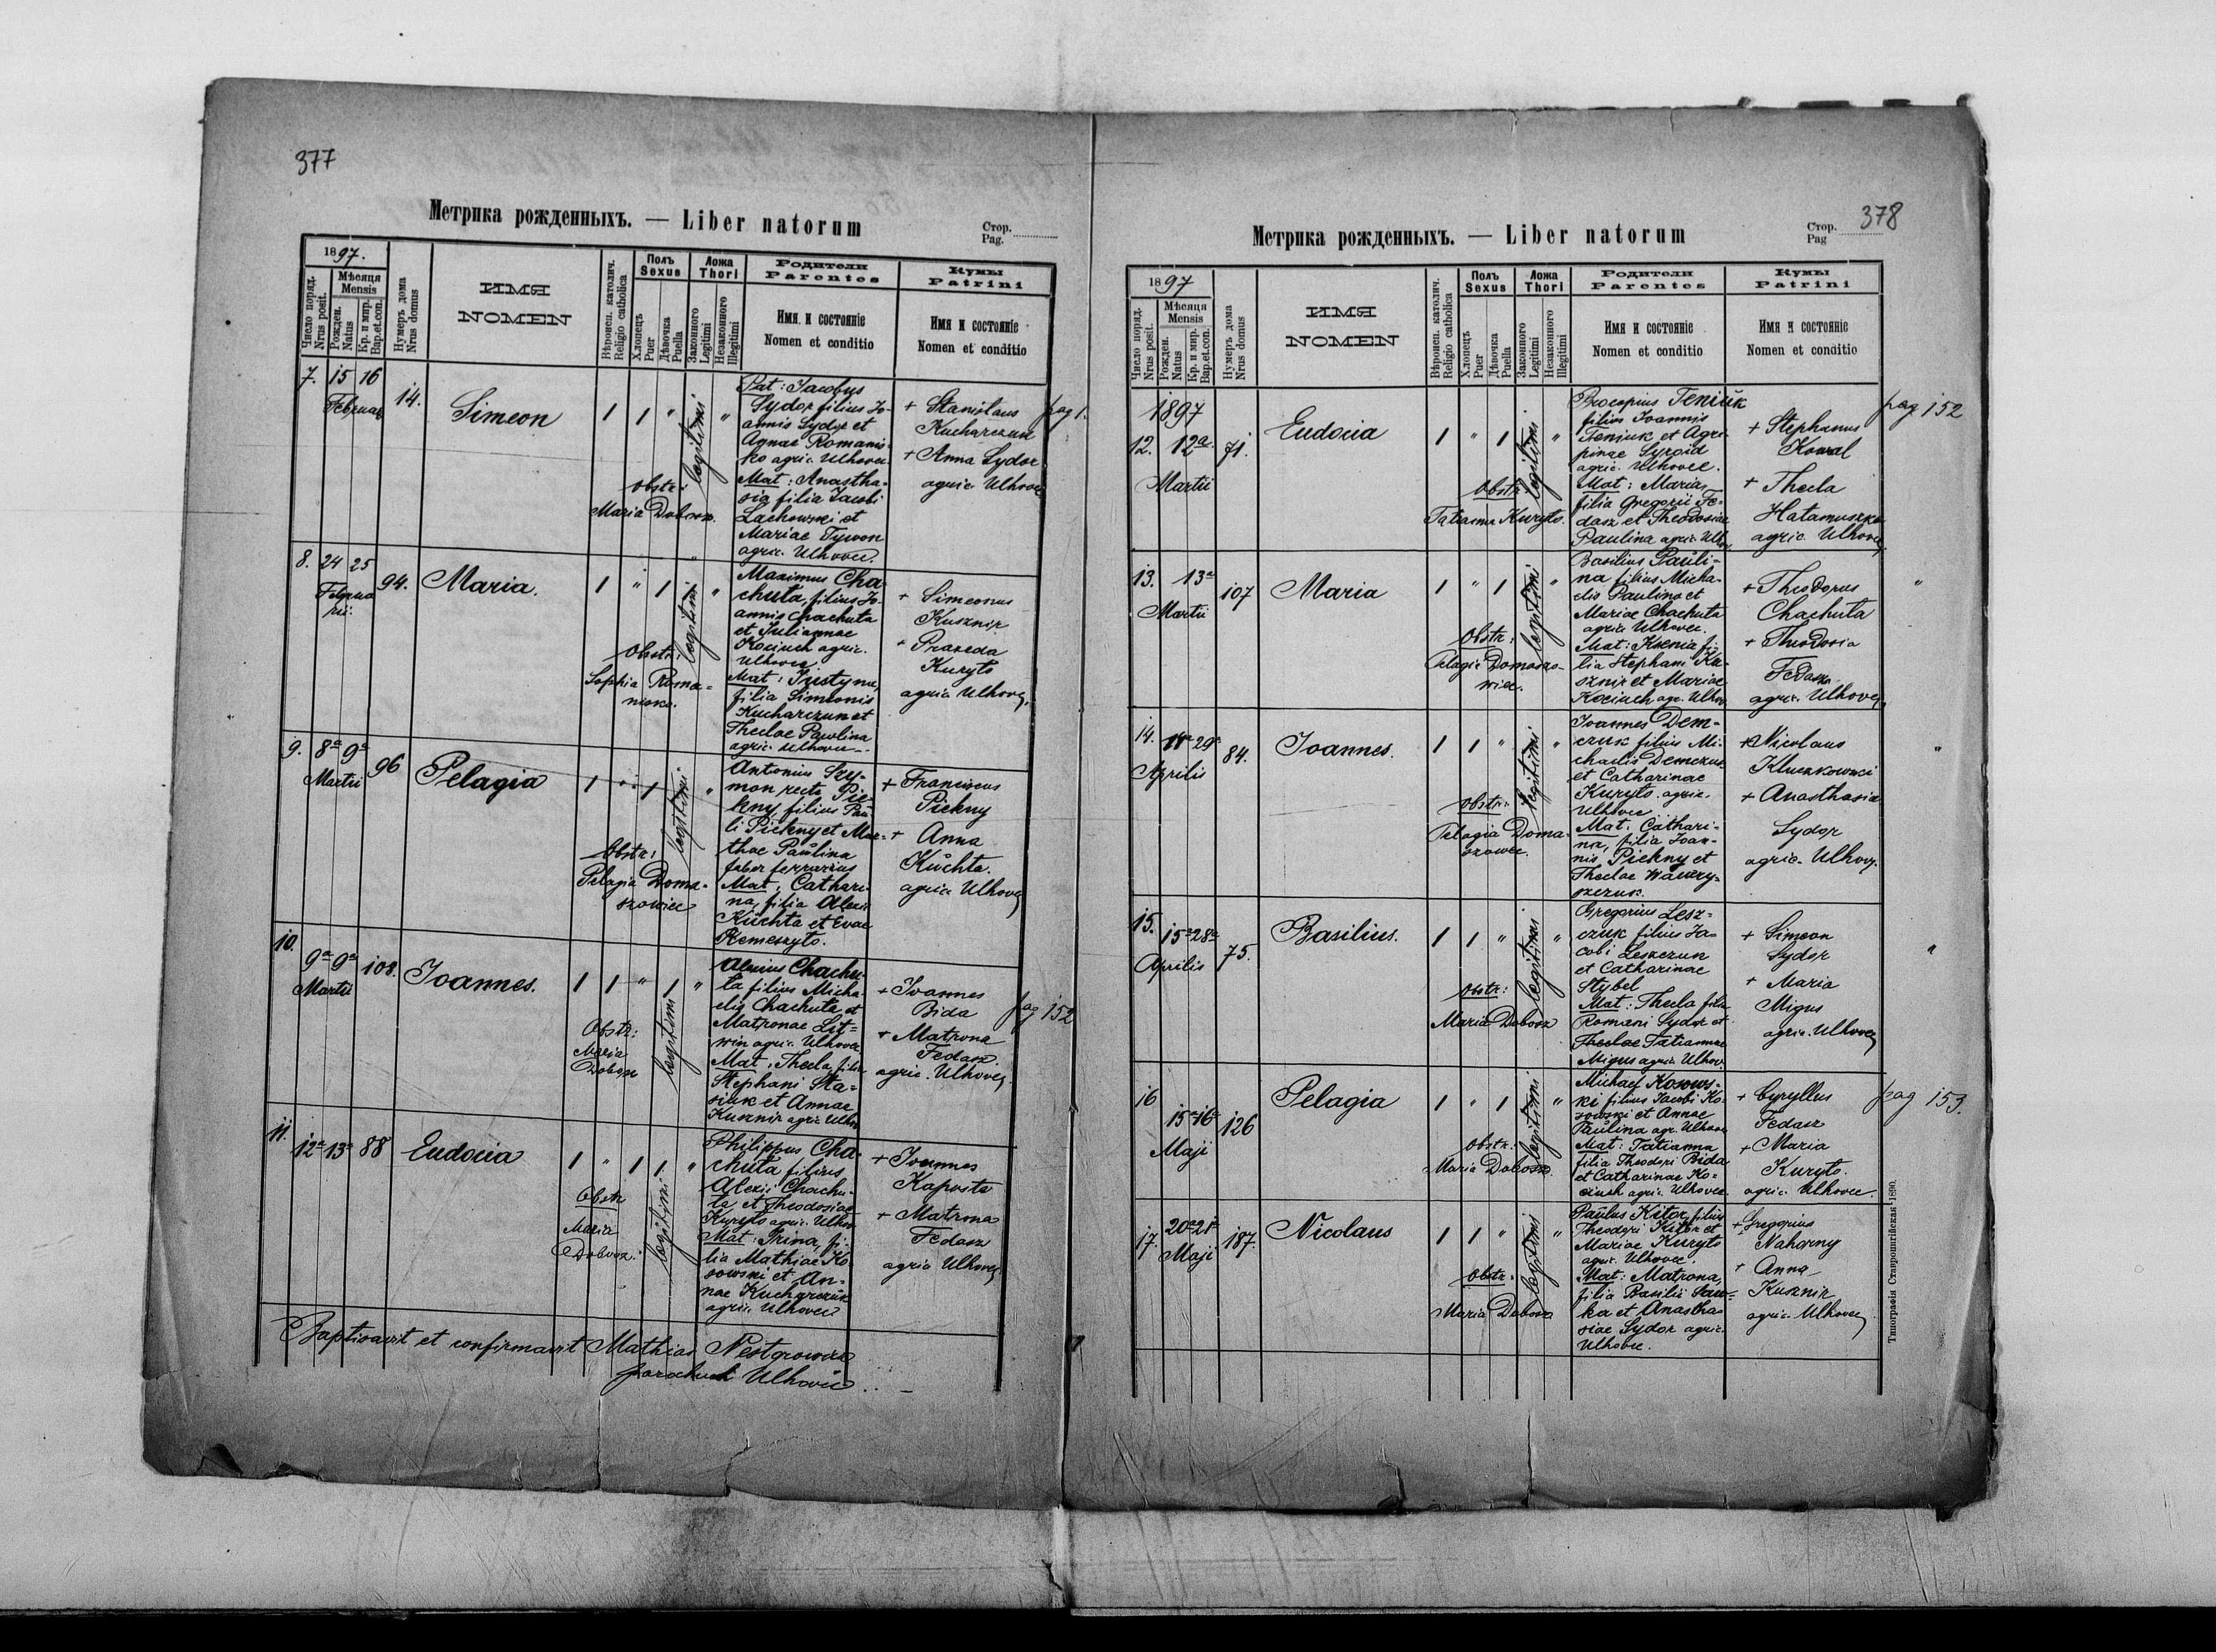 377
Метрика рожденныхъ. — Liber natorum
Стор.
Pag.
1897.
Число поряд.
Nrus posit.
Мѣсяця
Mensis
Рожден.
Natus
Кр. и мир.
Bap.et.con.
Нумеръ дома
Nrus domus
ИМЯ
NOMEN
Вѣроисп. католич.
Religio catholica
Полъ
Sexus
Хлопецъ
Puer
Дѣвочка
Puella
Ложа
Thori
Законного
Legitimi
Незаконного
Illegitimi
Родители
Parentes
Имя и состоянiе
Nomen et conditio
Кумы
Patrini
Имя и состоянiе
Nomen et conditio
7. 15 16
Februar
14.
Simeon
1 1 " legitimi "
obstr:
Maria Dobosz.
Pat: Jacobus
Sydor filius Jo-
annis Sydor et
Agnae Romanis-
ko agric. Ulhovec.
Mat: Anastha-
sia filia Jacobi
Lachowski et
Mariae Tywon
agric. Ulhovec.
+ Stanislaus
Kucharczuk
+ Anna Sydor
agric. Ulhovec
8. 24 25
Februa
rii:
94.
Maria.
1 " 1 legitimi "
Obstr:
Sophia Roma-
nisko.
Maximus Cha-
chuta, filius Jo-
annis Chachuta
et Juliannae
Kociuch agric.
Ulhovec
Mat: Justyna,
filia Simeonis
Kucharczuk et
Theclae Pawlina
agric. Ulhovec.
+ Simeonus
Kusznir
+ Praxeda
Kuryto
agric. Ulhovec,
9. 8a 9a
Martii
96
Pelagia
1 " 1 legitimi "
Obstr:
Pelagia Doma-
szowiec
Antonius Szy-
mon recte Pie-
kny, filius Pau-
li Piekny et Mar-
thae Paulina
faber ferrarius
Mat: Cathari-
na, filia Alexii
Kuchta et Evae
Remeszyto.
+ Franciscus
Piekny
+ Anna
Kuchta.
agric. Ulhovec
10. 9a 9a
Martii
108.
Joannes.
1 1 " 1 legitimi "
Obstr:
Maria
Dobosz
Alexius Chachu-
ta filius Micha-
elis Chachuta et
Matronae Lit-
win agric. Ulhovec
Mat: Thecla, filia
Stephani Sta-
siuk et Annae
Kusznir agric. Ulhov
+ Joannes
Bida
+ Matrona
Fedasz
agric. Ulhovec.
pag 152
11. 12a 13a 88
Eudocia
1 " 1 1. legitimi "
Obstr
Maria
Dobosz.
Philippus Cha-
chuta filius
Alexii Chachu-
ta et Theodosiae
Kuryto agric. Ulhov
Mat: Irina, fi-
lia Mathiae Ko-
sowski et An-
nae Kucharczuk
agric. Ulhovec
+ Joannes
Kapusta
+ Matrona
Fedasz
agric Ulhovec
Baptisavit et confirmavit Mathias
parochus Ulhovec
378
Метрика рожденныхъ. — Liber natorum
Стор.
Pag
1897
Число поряд.
Nrus posit.
Мѣсяця
Mensis
Рожден.
Natus
Кр. и мир.
Bap.et.con.
Нумеръ дома
Nrus domus
ИМЯ
NOMEN
Вѣроисп. католич.
Religio catholica
Полъ
Sexus
Хлопецъ
Puer
Дѣвочка
Puella
Ложа
Thori
Законного
Legitimi
Незаконного
Illegitimi
Родители
Parentes
Имя и состоянiе
Nomen et conditio
Кумы
Patrini
Имя и состоянiе
Nomen et conditio
1897
12. 12a
Martii
71.
Eudocia
1 " 1 legitimi "
Obstr:
Tatianna Kuryto.
Procopius Teniuk
filius Joannis
Teniuk et Agri-
pinae Syroid
agric. Ulhovec.
Mat: Maria,
filia Gregorii Fe-
dasz et Theodosiae
Paulina agric. Ulhov
+ Stephanus
Kowal
+ Thecla
Hatamuszka
agric. Ulhovec
pag 152
13. 13a
Martii
107
Maria
1 " 1 legitimi "
Obstr:
Pelagia Domaszo-
wiec.
Basilius Pauli-
na filius Micha-
elis Paulina et
Mariae Chachuta
agric. Ulhovec.
Mat: Ksenia fi-
lia Stephani Ku-
sznir et Mariae
Kociuch agr. Ulhov
+ Theodorus
Chachuta
+ Theodosia
Fedasz
agric. Ulhovec
"
14. 29a
Aprilis
84.
Joannes.
1 1 " legitimi "
Obstr:
Pelagia Doma-
szowec.
Joannes Dem-
czuk filius Mi-
chaelis Demczuk
et Catharinae
Kuryto agric.
Ulhovec
Mat: Cathari-
na, filia Joan-
nis Piekny et
Theclae Wawry-
szczuk.
+ Nicolaus
Kluczkowski
+ Anasthasia
Sydor
agric. Ulhov.
"
15. 15a 28a
Aprilis
75.
Basilius.
1 1 " legitimi "
Obstr:
Maria Dobosz
Gregorius Lesz-
czuk filius Ja-
cobi Leszczuk
et Catharinae
Stybel
Mat: Thecla filia
Romani Sydor et
Theclae Tatiannae
Migus agric. Ulhov.
+ Simeon
Sydor
+ Maria
Migus
agric. Ulhovec
"
16 15a 16a
Maji
126
Pelagia
1 " 1 legitimi "
Obstr:
Maria Dobosz.
Michael Kosows-
ki filius Jacobi Ko-
sowski et Annae
Paulina agr. Ulhovec
Mat: Tatianna
filia Theodori Bida
et Catharinae Ko-
ciuch agric. Ulhovec.
+ Cyryllus
Fedasz
+ Maria
Kuryto.
agric. Ulhovec.
pag 153.
17. 20a 21a
Maji
187.
Nicolaus
1 1 " legitimi "
Obstr:
Maria Dobosz
Paulus Kitor, filius
Theodori Kitor et
Mariae Kuryto
agric. Ulhovec.
Mat: Matrona,
filia Basilii Saw-
ka et Anastha-
siae Sydor agric.
Ulhovec.
+ Gregorius
Nahorny
+ Anna
Kusznir
agric. Ulhovec
Типографія Ставропигійская 1890.